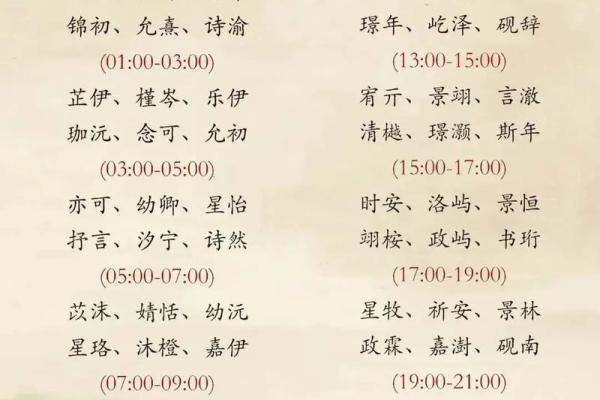 锦初、允熹、诗渝
(01:00-03:00)
芷伊、槿岑、乐伊
珈沅、念可、允初
(03:00-05:00)
亦可、幼卿、星怡
抒言、汐宁、诗然
(05:00-07:00)
苡沫、婧恬、幼沅
星珞、沐橙、嘉伊
(07:00-09:00)
璟年、屹泽、砚辞
(13:00-15:00)
宥亓、景翊、言澈
清樾、璟灏、斯年
(15:00-17:00)
时安、洛屿、景恒
翊桉、政屿、书珩
(17:00-19:00)
星牧、祈安、景林
政霖、嘉澍、砚南
(19:00-21:00)